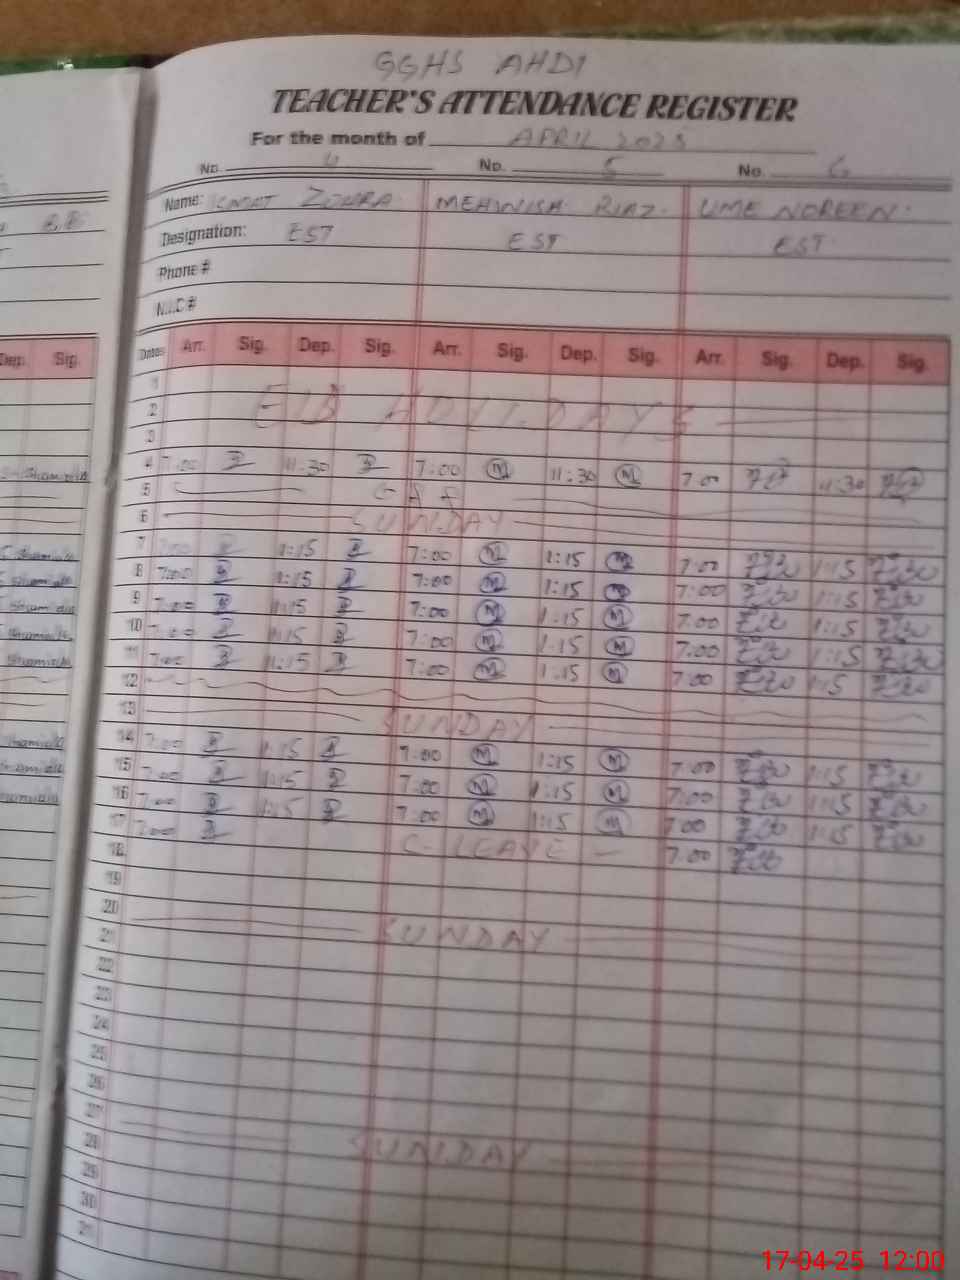 GGHS AHDI
TEACHER'S ATTENDANCE REGISTER
For the month of APRIL 2025
No. 4 No. 5 No. 6
Name: ZOHRA MEHWISH RIAZ. UME NOREEN.
Designation: EST EST EST
Phone #
N.I.C #
Dates Arr. Sig. Dep. Sig. Arr. Sig. Dep. Sig. Arr. Sig. Dep. Sig.
Dep. Sig.
1
2 EID HOLIDAYS
3
4 7:00 11:30 7:00 M 11:30 M 7:00 11:30
5
6 SUNDAY
7 7:00 1:15 7:00 M 1:15 M 7:00 1:15
8 7:00 1:15 7:00 M 1:15 M 7:00 1:15
9 7:00 1:15 7:00 M 1:15 M 7:00 1:15
10 7:00 1:15 7:00 M 1:15 M 7:00 1:15
11 7:00 1:15 7:00 M 1:15 M 7:00 1:15
12
13 SUNDAY
14 7:00 1:15 7:00 M 1:15 M 7:00 1:15
15 7:00 1:15 7:00 M 1:15 M 7:00 1:15
16 7:00 1:15 7:00 M 1:15 M 7:00 1:15
17 7:00 C-LEAVE 7:00
18
19
20 SUNDAY
21
22
23
24
25
26
27 SUNDAY
28
29
30
31
17-04-25 12:00